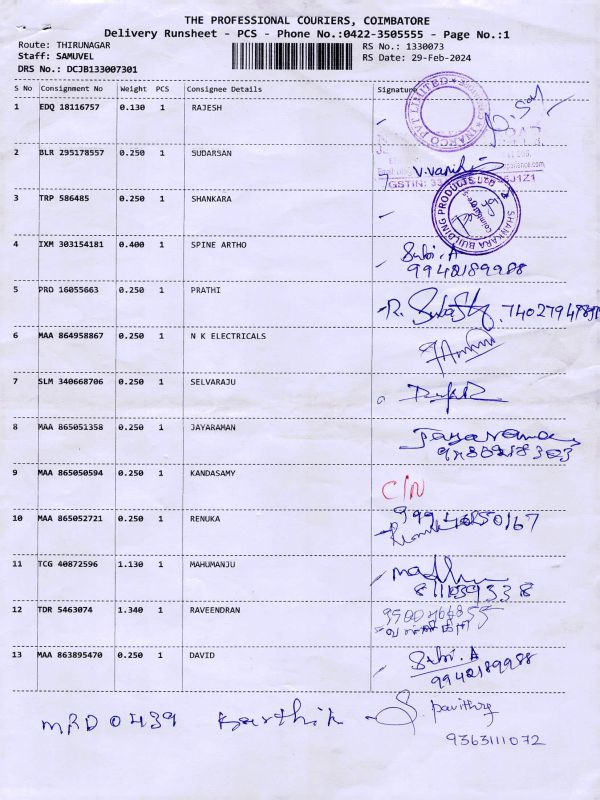 THE PROFESSIONAL COURIERS, COIMBATORE
Delivery Runsheet - PCS - Phone No.:0422-3505555 - Page No.:1
Route: THIRUNAGAR RS No.: 1330073
Staff: SAMUVEL RS Date: 29-Feb-2024
DRS No.: DCJB133007301
S No Consignment No Weight PCS Consignee Details Signature
1 EDQ 18116757 0.130 1 RAJESH
INARCO PVT LIMITED
2 BLR 295178557 0.250 1 SUDARSAN V.Vani
GSTIN: 33
5J1Z1
3 TRP 586485 0.250 1 SHANKARA
SHANKARA BUILDING PRODUCTS
4 IXM 303154181 0.400 1 SPINE ARTHO Subi.A
9942189988
5 PRO 16055663 0.250 1 PRATHI R.
6 MAA 864958867 0.250 1 N K ELECTRICALS
7 SLM 340668706 0.250 1 SELVARAJU
8 MAA 865051358 0.250 1 JAYARAMAN Jayaraman
9 MAA 865050594 0.250 1 KANDASAMY C/N
10 MAA 865052721 0.250 1 RENUKA
11 TCG 40872596 1.130 1 MAHUMANJU
12 TDR 5463074 1.340 1 RAVEENDRAN
13 MAA 863895470 0.250 1 DAVID Subi.A
9942189988
MRD 0439 Karthik S. pavithra
9363111072